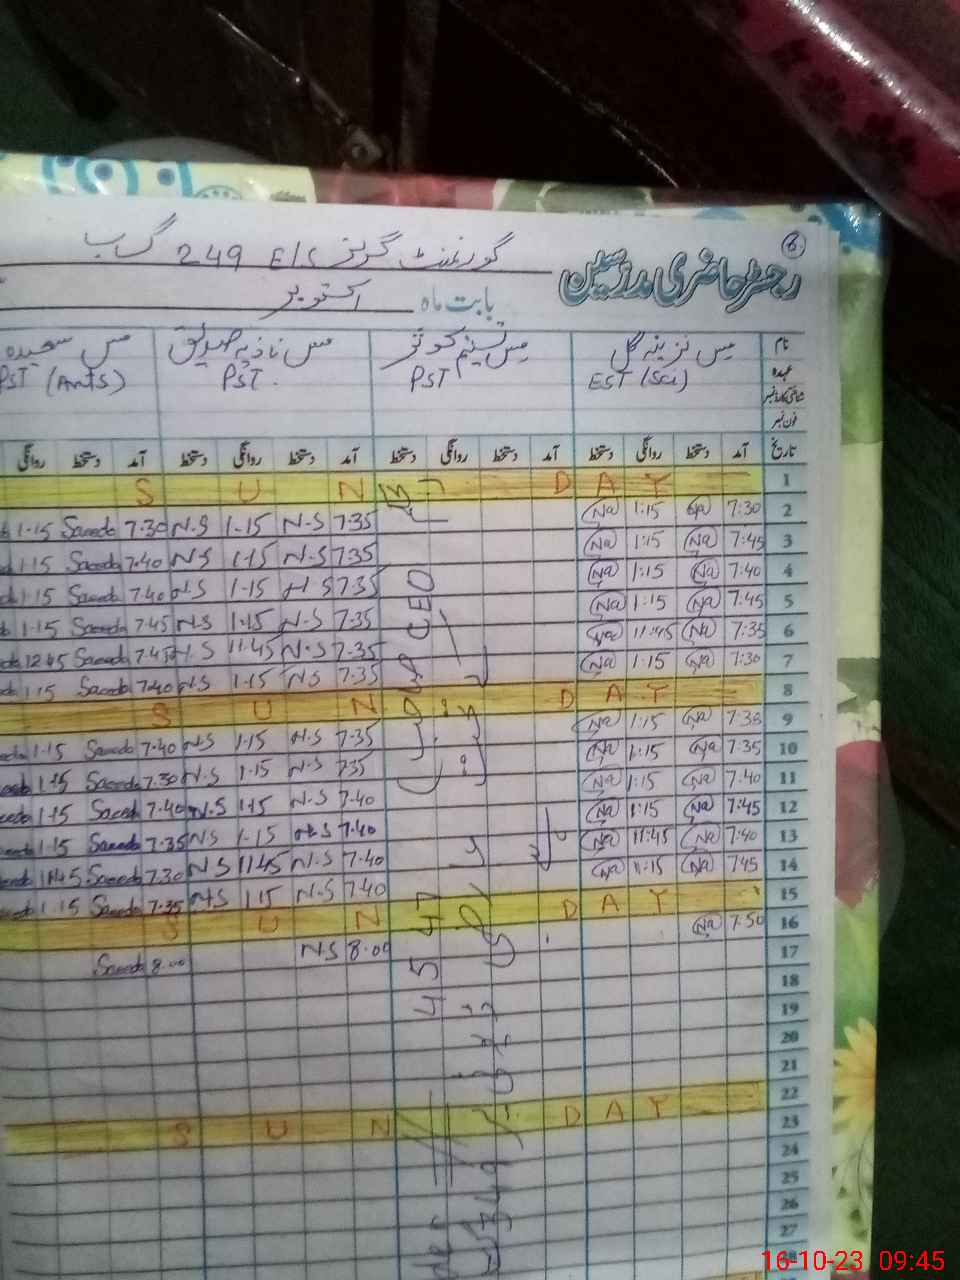 6
رجسٹر حاضری مدرسین گورنمنٹ گرلز E/S 249 گ ب
بابت ماہ اکتوبر
نام مس نزینہ گل مس تسنیم کوثر مس نادیہ صدیق مس سعیدہ
عہدہ EST (Sci) PST PST. PST (Arts)
شناختی کارڈ نمبر
فون نمبر
تاریخ آمد دستخط روانگی دستخط آمد دستخط روانگی دستخط آمد دستخط روانگی دستخط آمد دستخط روانگی
1 S U N D A Y
2 7:30 Na 1:15 Na 7.35 N.S 1.15 N.S 7.30 Saeeda 1.15
3 7:45 Na 1:15 Na 7.35 N.S 1.15 N.S 7.40 Saeeda 1.15
4 7:40 Na 1:15 Na 7.35 N.S 1.15 N.S 7.40 Saeeda 1.15
5 7:45 Na 1:15 Na 7.35 N.S 1.15 N.S 7.45 Saeeda 1.15
6 7:35 Na 11:45 Na 7.35 N.S 11.45 N.S 7.45 Saeeda 12.45
7 7:30 Na 1:15 Na 7.35 N.S 1.15 N.S 7.40 Saeeda 1.15
8 S U N D A Y
9 7:38 Na 1:15 Na 7.35 N.S 1.15 N.S 7.40 Saeeda 1.15
10 7:35 Na 1:15 Na 7.35 N.S 1.15 N.S 7.30 Saeeda 1.15
11 7:40 Na 1:15 Na 7.40 N.S 1.15 N.S 7.40 Saeeda 1.15
12 7:45 Na 1:15 Na 7.40 N.S 1.15 N.S 7.35 Saeeda 1.15
13 7:40 Na 11:45 Na 7.40 N.S 11.45 N.S 7.30 Saeeda 11.45
14 7:45 Na 1:15 Na 7.40 N.S 1.15 N.S 7.35 Saeeda 1.15
15 S U N D A Y
16 7:50 Na 8.00 N.S 8.00 Saeeda
17
18
19
20
21
22 S U N D A Y
23
24
25
26
27
28
CEO
16-10-23 09:45